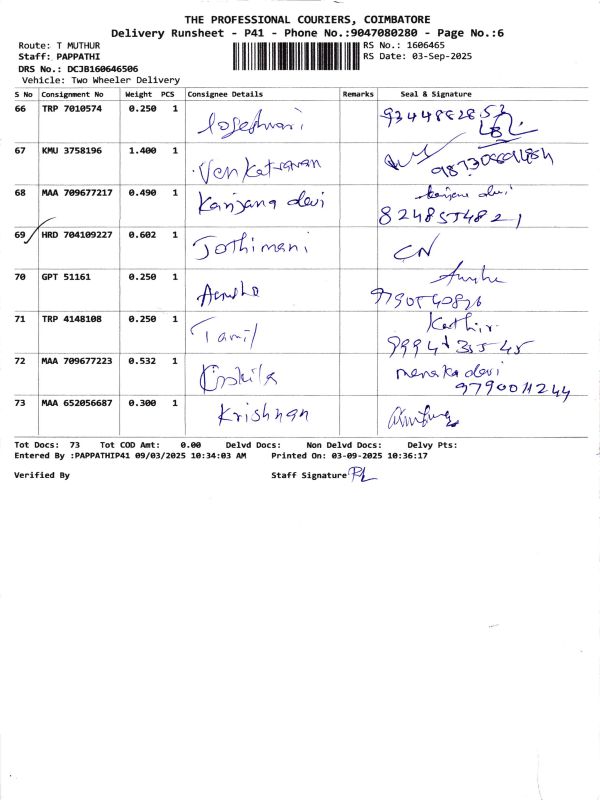 THE PROFESSIONAL COURIERS, COIMBATORE
Delivery Runsheet - P41 - Phone No.:9047080280 - Page No.:6
Route: T MUTHUR
RS No.: 1606465
Staff: PAPPATHI
RS Date: 03-Sep-2025
DRS No.: DCJB160646506
Vehicle: Two Wheeler Delivery
S No Consignment No Weight PCS Consignee Details Remarks Seal & Signature
66 TRP 7010574 0.250 1
67 KMU 3758196 1.400 1 Venkatraman
68 MAA 709677217 0.490 1 Kanjana devi
8248554821
69 HRD 704109227 0.602 1 Jothimani CN
70 GPT 51161 0.250 1
71 TRP 4148108 0.250 1 Tamil Kathir
72 MAA 709677223 0.532 1 menaka devi
9790011244
73 MAA 652056687 0.300 1 Krishnan
Tot Docs: 73 Tot COD Amt: 0.00 Delvd Docs: Non Delvd Docs: Delvy Pts:
Entered By :PAPPATHIP41 09/03/2025 10:34:03 AM Printed On: 03-09-2025 10:36:17
Verified By Staff Signature